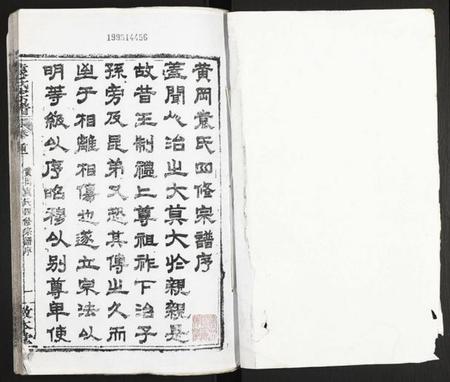 199514456
黄岡袁氏四修宗譜序
蓋聞人治之大莫大於親親是
故昔王制禮上尊祖祢下治子
孫旁及昆弟又恐其傳之久而
凶于相離相傷也遂立宗法以
明等級以序昭穆以別尊卑使
袁氏宗譜
黄岡袁氏四修宗譜序